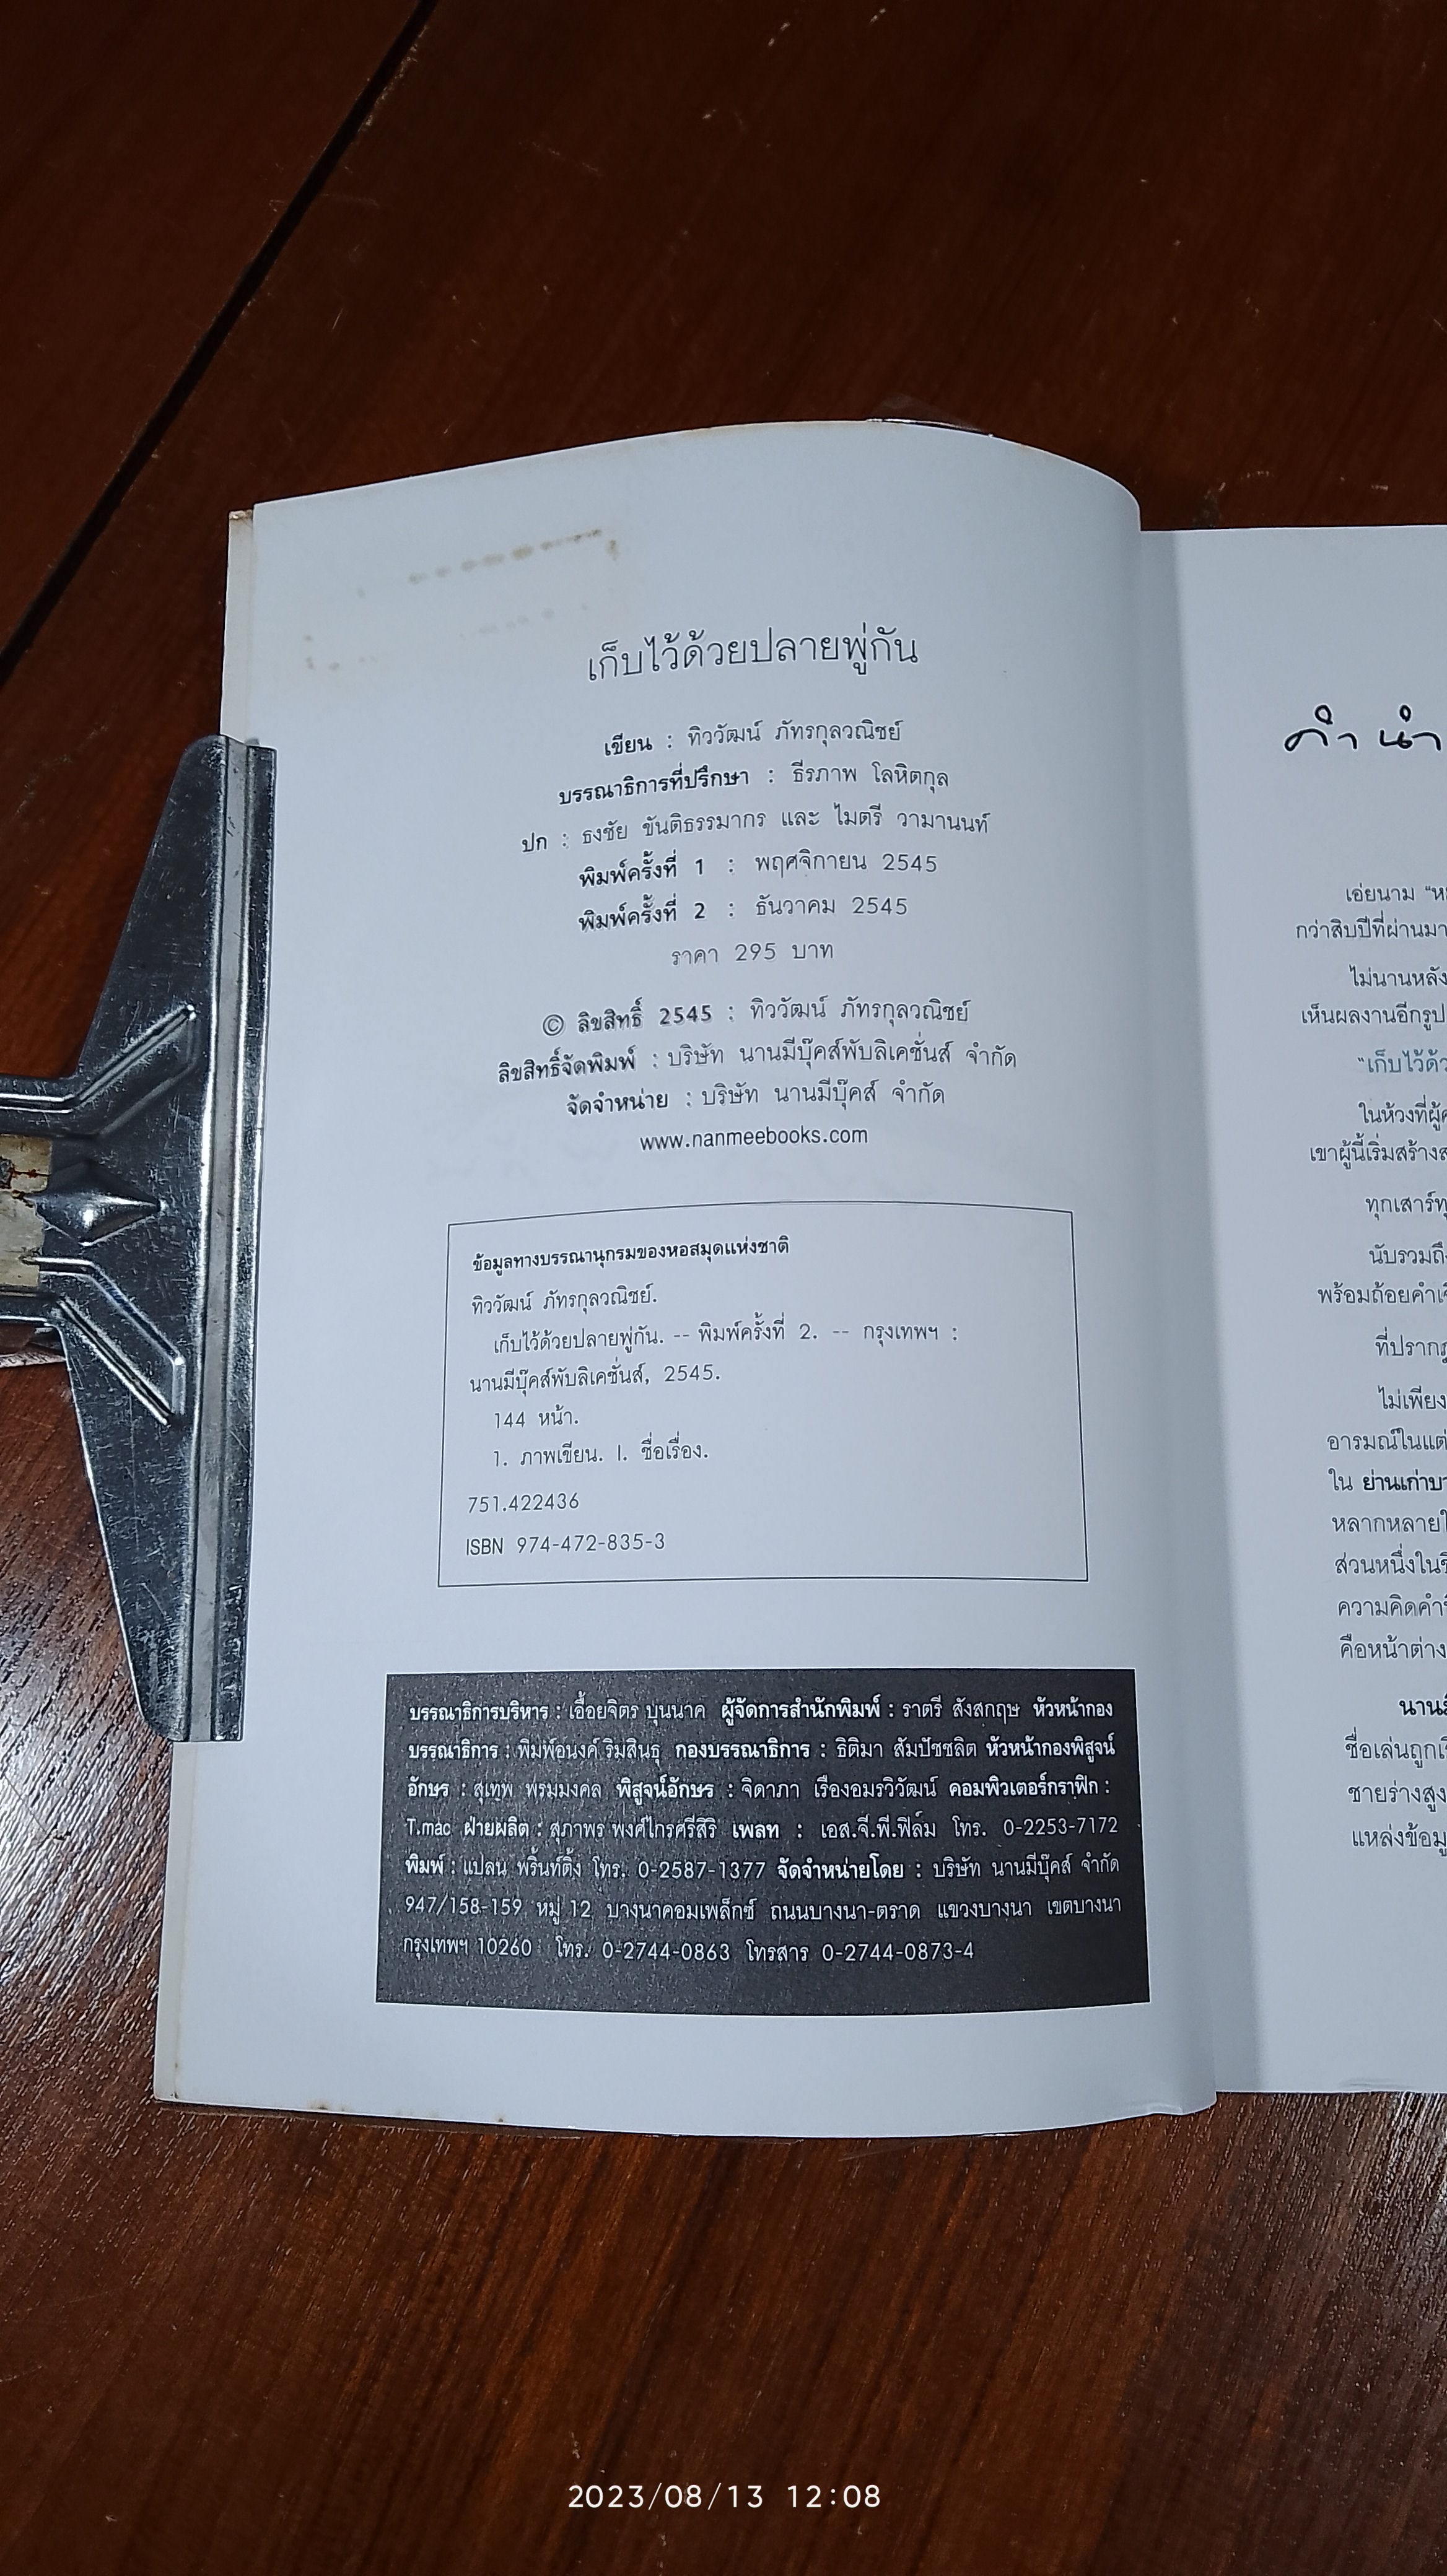 เก็บไว้ด้วยปลายพู่กัน
เขียน : ทิววัฒน์ ภัทรกุลวณิชย์
บรรณาธิการที่ปรึกษา : ธีรภาพ โลหิตกุล
ปก : ธงชัย ขันติธรรมากร และ ไมตรี วามานนท์
พิมพ์ครั้งที่ 1 : พฤศจิกายน 2545
พิมพ์ครั้งที่ 2 : ธันวาคม 2545
ราคา 295 บาท
© ลิขสิทธิ์ 2545 : ทิววัฒน์ ภัทรกุลวณิชย์
ลิขสิทธิ์จัดพิมพ์ : บริษัท นานมีบุ๊คส์พับลิเคชั่นส์ จำกัด
จัดจำหน่าย : บริษัท นานมีบุ๊คส์ จำกัด
www.nanmeebooks.com
ข้อมูลทางบรรณานุกรมของหอสมุดแห่งชาติ
ทิววัฒน์ ภัทรกุลวณิชย์.
เก็บไว้ด้วยปลายพู่กัน. -- พิมพ์ครั้งที่ 2. -- กรุงเทพฯ :
นานมีบุ๊คส์พับลิเคชั่นส์, 2545.
144 หน้า.
1. ภาพเขียน. I. ชื่อเรื่อง.
751.422436
ISBN 974-472-835-3
บรรณาธิการบริหาร : เอื้อยจิตร บุนนาค ผู้จัดการสำนักพิมพ์ : ราตรี สังสกฤษ หัวหน้ากอง
บรรณาธิการ : พิมพ์อนงค์ ริมสินธุ กองบรรณาธิการ : ธิติมา สัมปัชชลิต หัวหน้ากองพิสูจน์
อักษร : สุเทพ พรมมงคล พิสูจน์อักษร : จิดาภา เรืองอมรวิวัฒน์ คอมพิวเตอร์กราฟิก :
T.mac ฝ่ายผลิต : สุภาพร พงศ์ไกรศรีสิริ เพลท : เอส.จี.พี.ฟิล์ม โทร. 0-2253-7172
พิมพ์ : แปลน พริ้นท์ติ้ง โทร. 0-2587-1377 จัดจำหน่ายโดย : บริษัท นานมีบุ๊คส์ จำกัด
947/158-159 หมู่ 12 บางนาคอมเพล็กซ์ ถนนบางนา-ตราด แขวงบางนา เขตบางนา
กรุงเทพฯ 10260 โทร. 0-2744-0863 โทรสาร 0-2744-0873-4
คำนำ
เอ่ยนาม
กว่าสิบปีที่ผ่านมา
ไม่นานหลัง
เห็นผลงานอีกรูป
"เก็บไว้ด้ว
ในห้วงที่ผู้
เขาผู้นี้เริ่มสร้าง
ทุกเสาร์
นับรวมถึง
พร้อมถ้อยคำ
ที่ปราก
ไม่เพียง
อารมณ์ในแต่
ใน ย่านเก่า
หลากหลาย
ส่วนหนึ่งใน
ความคิดคำ
คือหน้าต่าง
นาน
ชื่อเล่นถูก
ชายร่างสูง
แหล่งข้อมู
2023/08/13 12:08